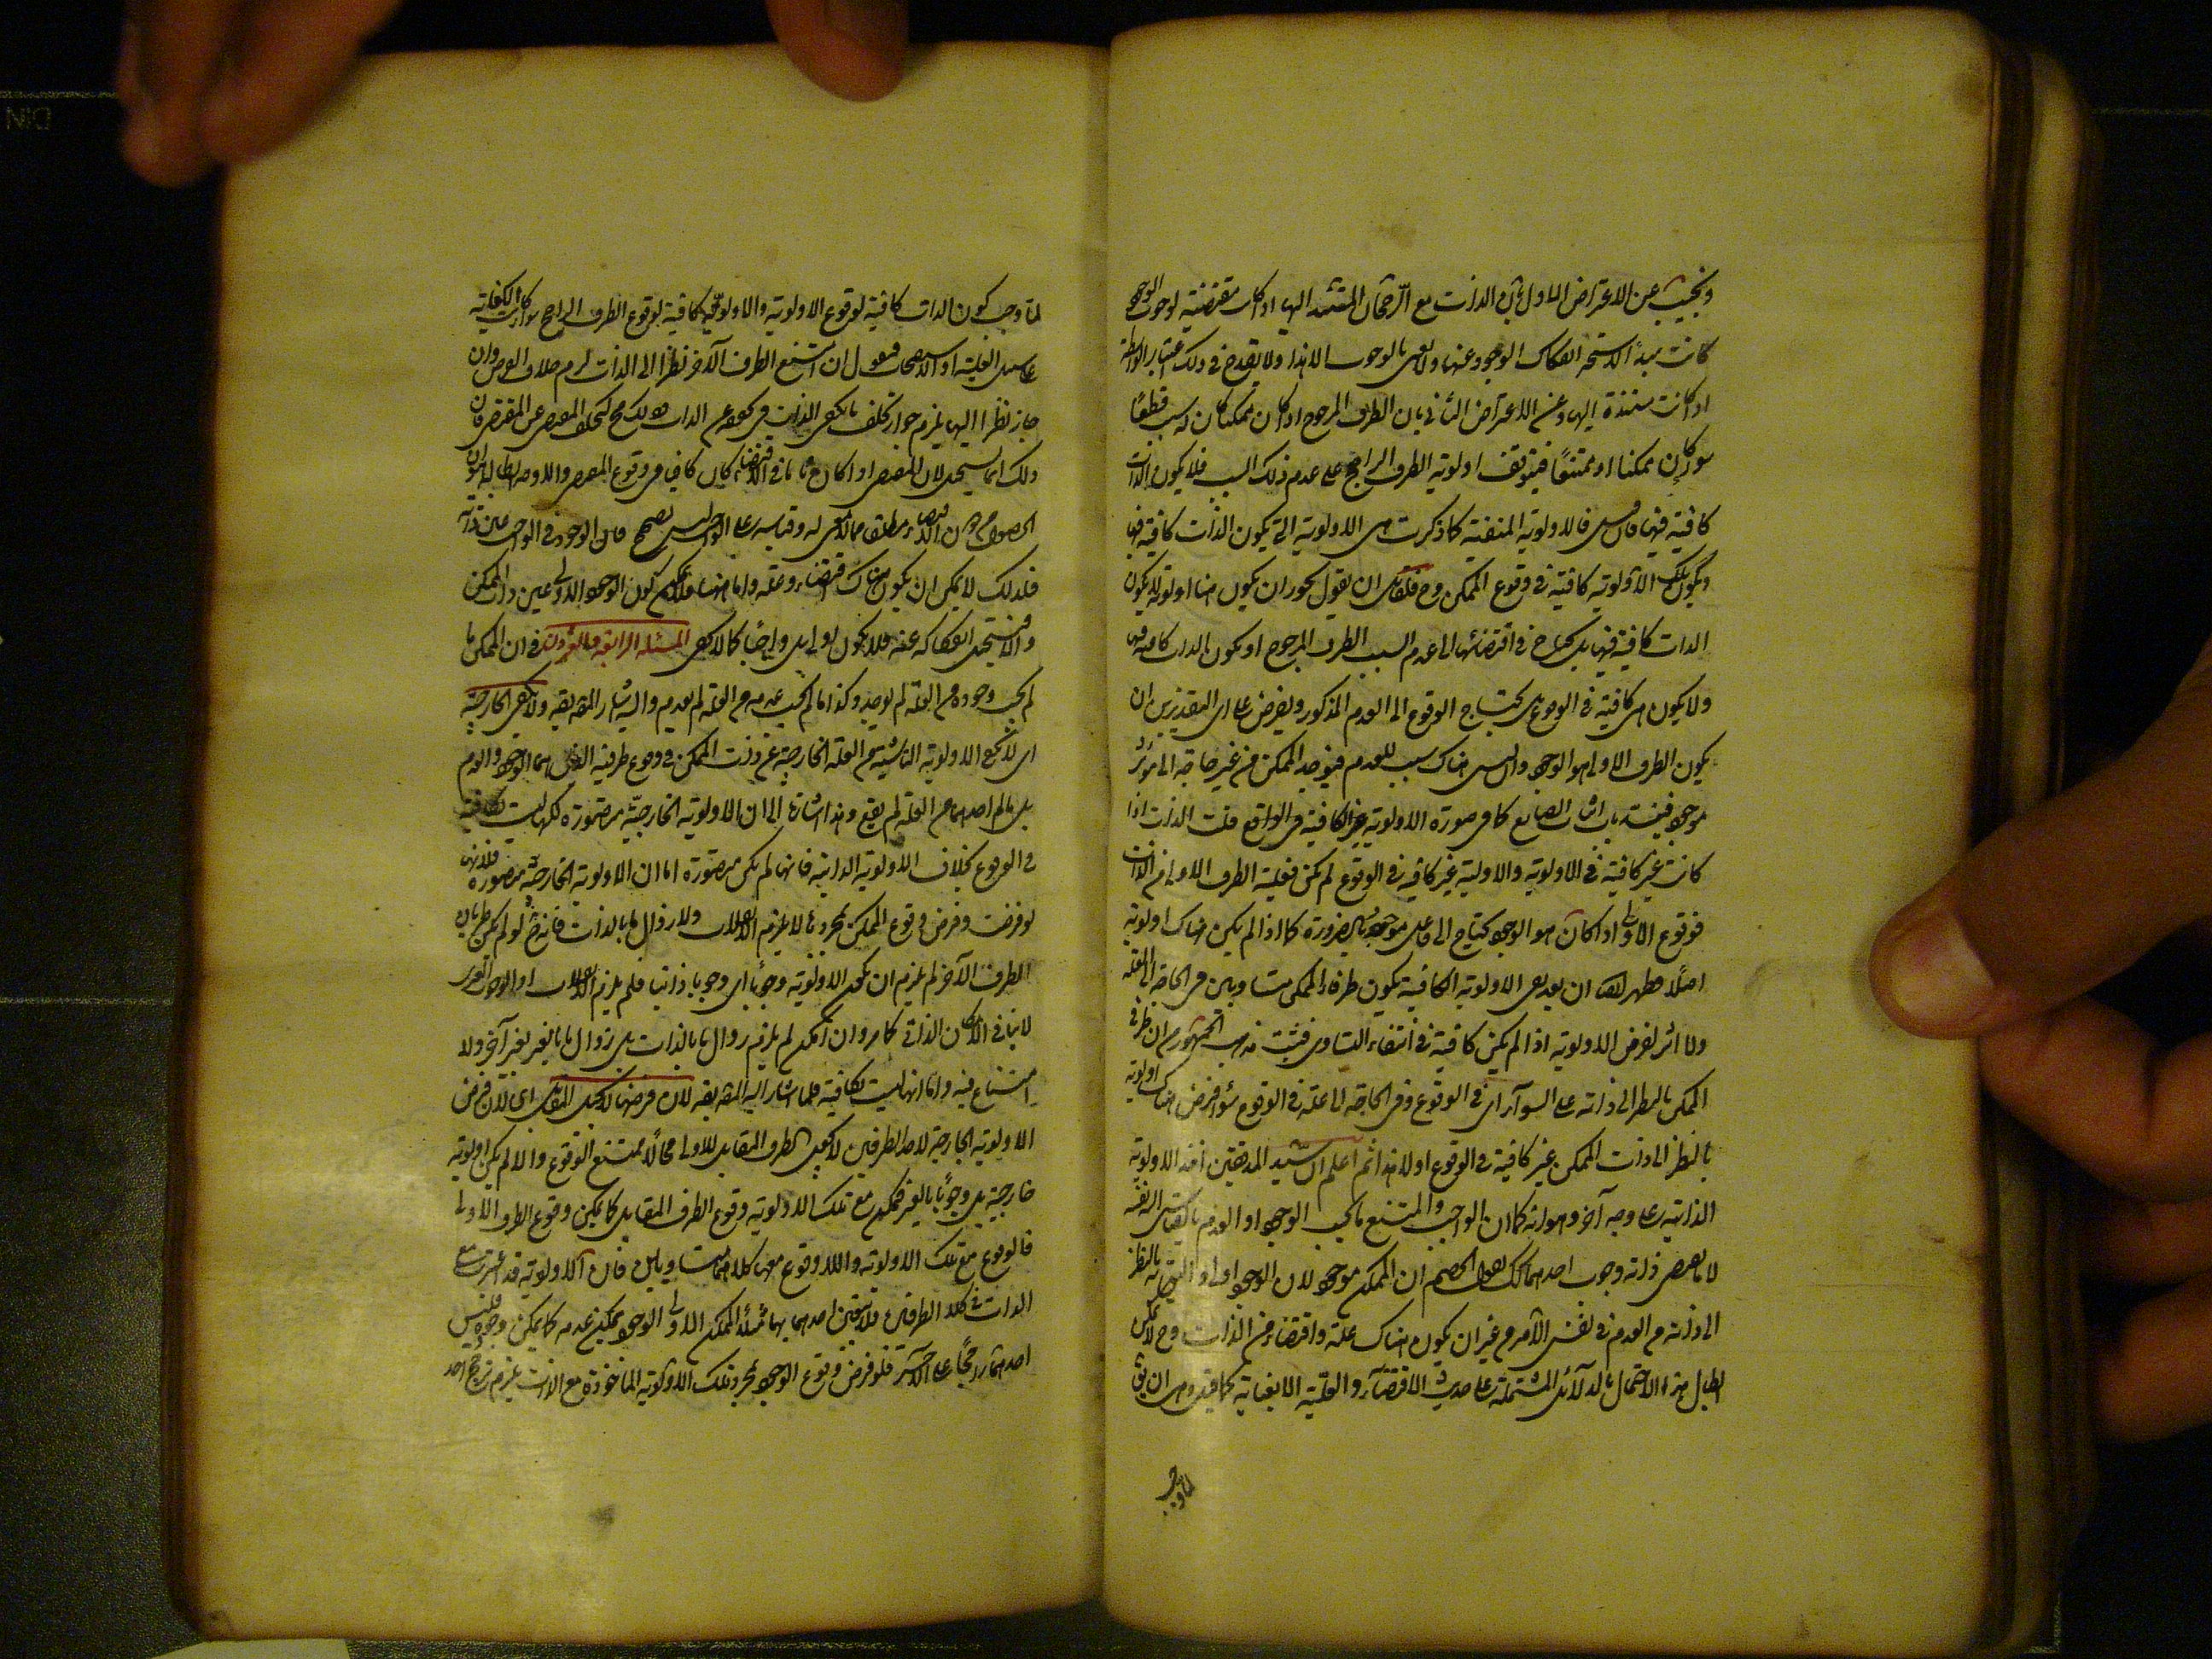 ونجيب عن الاعتراض الاول بان الذات مع الرجحان المستند اليها اذا كانت مقتضية لوجوب الوجود
كانت مبدأ لاستحالة انفكاك الوجود عنها ولا نعنى بالوجوب الا هذا ولا يقدح في ذلك اعتبار الواسطة
اذا كانت مستندة اليها وعن الاعتراض الثاني بان الطرف المرجوح اذا كان ممكنا كان له سبب قطعًا
سواء كان ممكنا او ممتنعًا فيتوقف اولوية الطرف الراجح على عدم ذلك السبب فلا يكون الذات
كافية فيها فان قيل فالاولوية المنفية كما ذكرت هي الاولوية التي يكون الذات كافية فيها
ويكون تلك الاولوية كافية في وقوع الممكن وح فلقائل ان يقول يجوز ان يكون هنا اولوية لا يكون
الذات كافية فيها بل يحتاج في اقتضائها الى عدم السبب الطرف المرجوح او يكون الذات كافية فيها
ولا يكون هي كافية في الوقوع بل يحتاج الوقوع الى العدم المذكور ويفرض على اي التقديرين ان
يكون الطرف الاولى هو الوجود وليس هناك سبب للعدم فيوجد الممكن من غير حاجة الى مؤثر
موجود فينسد باب اثبات الصانع كما في صورة الاولوية الكافية في الواقع قلت الذات اذا
كانت غير كافية في الاولوية والاولية غير كافية في الوقوع لم يكن فعلية الطرف الاولى من الذات
فوقوع الاولى اذا كان هو الوجود يحتاج الى فاعل موجود بالضرورة كما اذا لم يكن هناك اولوية
اصلًا فظهر لك ان بعد نفى الاولوية الكافية يكون طرفا الممكن متساويين في الحاجة الى العلة
ولا اثر لفرض الاولوية اذا لم يكن كافية في انتفاء التساوى فثبت مذهب الجمهور من ان طرفى
الممكن بالنظر الى ذاته على السوآء اى في الوقوع وفي الحاجة الى علة في الوقوع سواء فرض هناك اولوية
بالنظر الى ذات الممكن غير كافية في الوقوع او لا هذا ثم اعلم ان سيد المدققين اخذ الاولوية
الذاتية على وجه آخر وهو انه كما ان الواجب والممتنع ما يجب الوجود او العدم بالقياس الى نفسه
لا ما يقتضى ذاته وجوب احدهما كذلك يقول الخصم ان الممكن موجود لان الوجود اولى له بالنظر
الى ذاته من العدم في نفس الآمر من غير ان يكون هناك علة واقتضاء من الذات وح لا يمكن
ابطال هذا الاحتمال بالدلآئل المشتملة على حديث الاقتضآء والعلية الا بعناية كما قيل وهي ان يق
لما وجب
لما وجب كون الذات كافية لوقوع الاولوية والاولوية كافية لوقوع الطرف الراجح سواء كانت الكفاية
على سبيل العلية او الاستصحاب فنقول ان امتنع الطرف الآخر نظرا الى الذات لزم خلاف الفرض وان
جاز نظرًا اليها يلزم جواز تخلف ما يكفى الذات في تحققه عن الذات وذلك مح كتخلف المقتضى عن المقتضى فان
ذلك انما يستحيل لان المقتضى اذا كان تاما في الاقتضاء كان كافيا في وقوع المقتضى
الحصول من دون الاقتضاء مطلق مما لا معنى له وقياسه على الواجب ليس بصحيح فان الوجود في الواجب عين ذاته
فلذلك لا يمكن ان يكون هناك اقتضاء وعلة واما هنا فلا يمكن كون الوجود الاولى عين ذات الممكن
والا لاستحيل انفكاكه عنه فلا يكون اولى بل واجبًا كما لا يخفى المسئلة الرابعة والعشرون في ان الممكن ما
لم يجب وجوده من العلة لم يوجد وكذا ما لم يجب عدمه من العلة لم يعدم واليه اشار المصـ بقوله ولا يكفى الخارجية
اى لا تكفى الاولوية الناشية من العلة الخارجية عن ذات الممكن في وقوع طرفيه اللذين هما الوجود والعدم
بل ما لم يجب احدهما من العلة لم يقع وهذا اشارة الى ان الاولوية الخارجية متصورة لكنها ليست بكافية
في الوقوع بخلاف الاولوية الذاتية فانها لم تكن متصورة اما ان الاولوية الخارجية متصورة فلانها
لو فرضت وفرض وقوع الممكن بمجردها لا يلزم الانقلاب ولا زوال ما بالذات فانه ح لو لم يكن طريان
الطرف الآخر لم يلزم ان يكون الاولوية وجوبًا اى وجوبا ذاتيا فلم يلزم الانقلاب اذ الوجوب بالغير
لا ينافى الامكان الذاتى كما مر وان امكن لم يلزم زوال ما بالذات بل زوال ما بالغير بغير آخر ولا
امتناع فيه واما انها ليست بكافية فلما اشار اليه المصـ بقوله لان فرضها لا يحيل المقابل اى لان فرض
الاولوية الخارجية لاحد الطرفين لا يحيل الطرف المقابل للاولى محالًا ممتنع الوقوع والا لم يكن اولوية
خارجية بل وجوبًا بالغير فيمكن مع تلك الاولوية وقوع الطرف المقابل كما يمكن وقوع الطرف الاولى
فالوقوع مع تلك الاولوية واللا وقوع معها كلاهما متساويان فان الاولوية قد اعتبرت مع
الذات في كلا الطرفين فلا يتعين احدهما بها مثلًا الممكن الاولى الوجود يمكن عدمه كما يمكن وجوده فليس
احدهما راجحًا على الآخر فلو فرض وقوع الوجود بمجرد تلك الاولوية المأخوذة مع الذات يلزم ترجيح احد